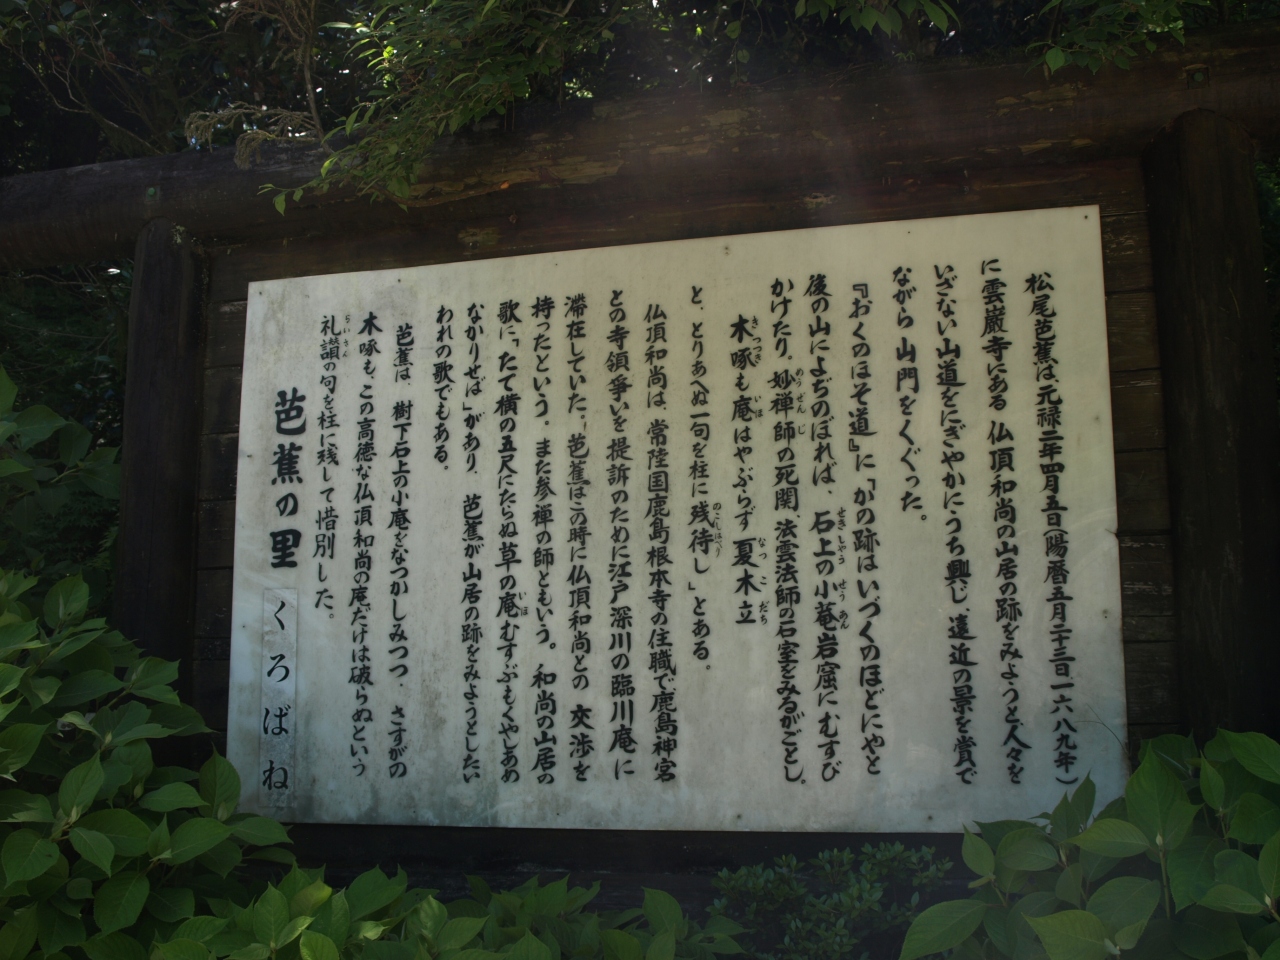 松尾芭蕉は、元禄二年四月五日(陽暦五月二十三日、一六八九年)
に雲巌寺にある仏頂和尚の山居の跡をみようと人々を
いざない山道をにぎやかにうち興じ、遠近の景を賞で
ながら山門をくぐった。
『おくのほそ道』に「かの跡はいづくのほどにやと
後の山によぢのぼれば、石上の小菴岩窟にむすび
かけたり。妙禅師の死関、法雲法師の石室をみるがごとし。
木啄も庵はやぶらず夏木立
と、とりあへぬ一句を柱に残侍し」とある。
仏頂和尚は、常陸国鹿島根本寺の住職で鹿島神宮
との寺領爭いを提訴のために江戸深川の臨川庵に
滞在していた。芭蕉はこの時に仏頂和尚との交渉を
持ったという。また参禅の師ともいう。和尚の山居の
歌に「たて横の五尺にたらぬ草の庵むすぶもくやしあめ
なかりせば」があり、芭蕉が山居の跡をみようとしたい
われの歌でもある。
芭蕉は、樹下石上の小庵をなつかしみつつ、さすがの
木啄も、この高徳な仏頂和尚の庵だけは破らぬという
礼讃の句を柱に残して惜別した。
芭蕉の里 くろばね